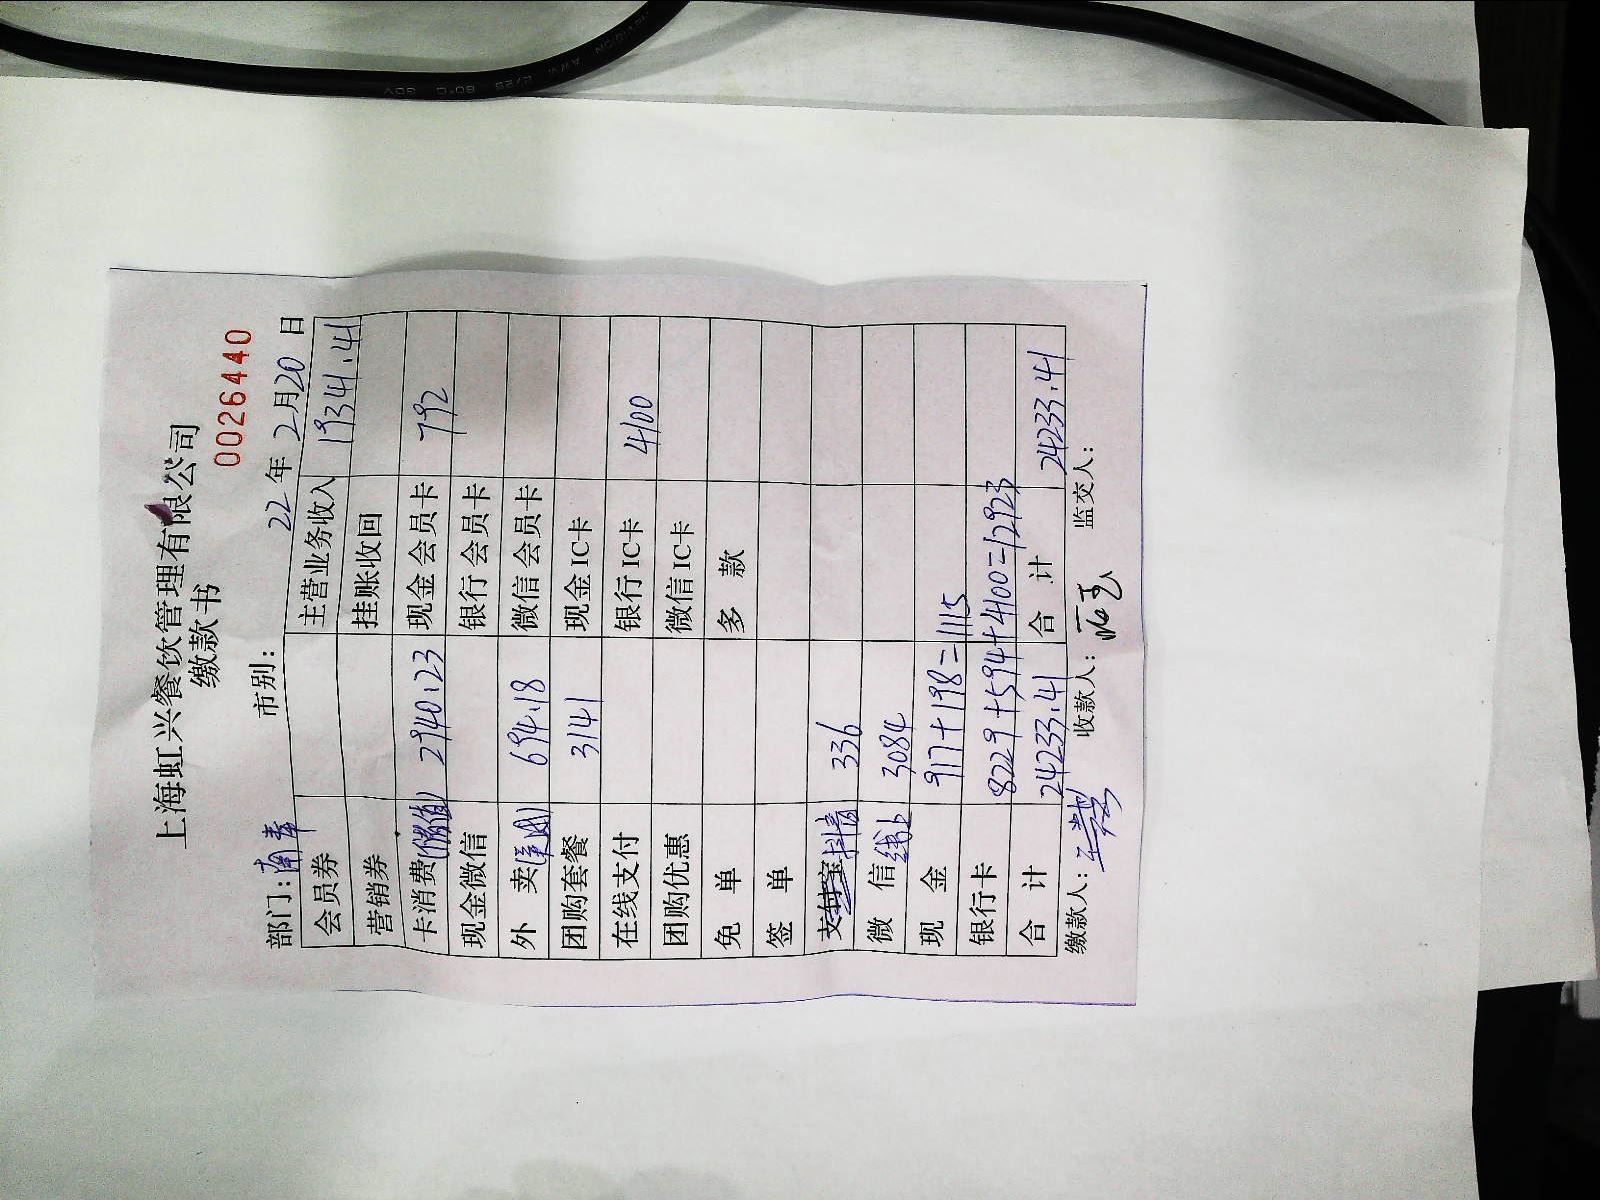 上海虹兴餐饮管理有限公司
缴款书
0026440
部门: 市别: 22 年 2 月 20 日
会员券 主营业务收入 19341.41
营销券 挂账收回
卡消费(储值) 2940.23 现金会员卡 792
现金微信 银行会员卡
外 卖(美团) 694.18 微信会员卡
团购套餐 3141 现金IC卡
在线支付 银行IC卡 4100
团购优惠 微信IC卡
免 单 多 款
签 单
抖音 336
微 信 线上 3084
现 金 917+198=1115
银行卡 8229+594+4100=12923
合 计 24233.41 合 计 24233.41
缴款人: 收款人: 监交人:
AWM 80°C 60V